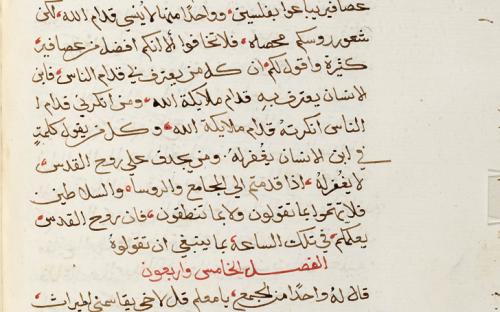 عصافير يباعوا بفلسين وواحدًا منها لا ينسي قدام الله لكن
شعور روسكم محصاه فلا تخافوا لانكم افضل من عصافير
كثيرة واقول لكم ان كل من يعترف بي قدام الناس فابن
الانسان يعترف به قدام ملايكة الله ومن انكرني قدام
الناس انكرته قدام ملايكة الله وكل من يقول كلمة
في ابن الانسان يغفر له ومن يجدف علي روح القدس
لا يغفر له اذا قدمتم الي المجامع والروسا والسلاطين
فلا تهتموا بما تقولون ولا بما تنطقون فان روح القدس
يعلمكم في تلك الساعة بما ينبغي ان تقولوه
الفصل الخامس واربعون
قال له واحدًا من الجمع يا معلم قل لاخي يقاسمني الميراث